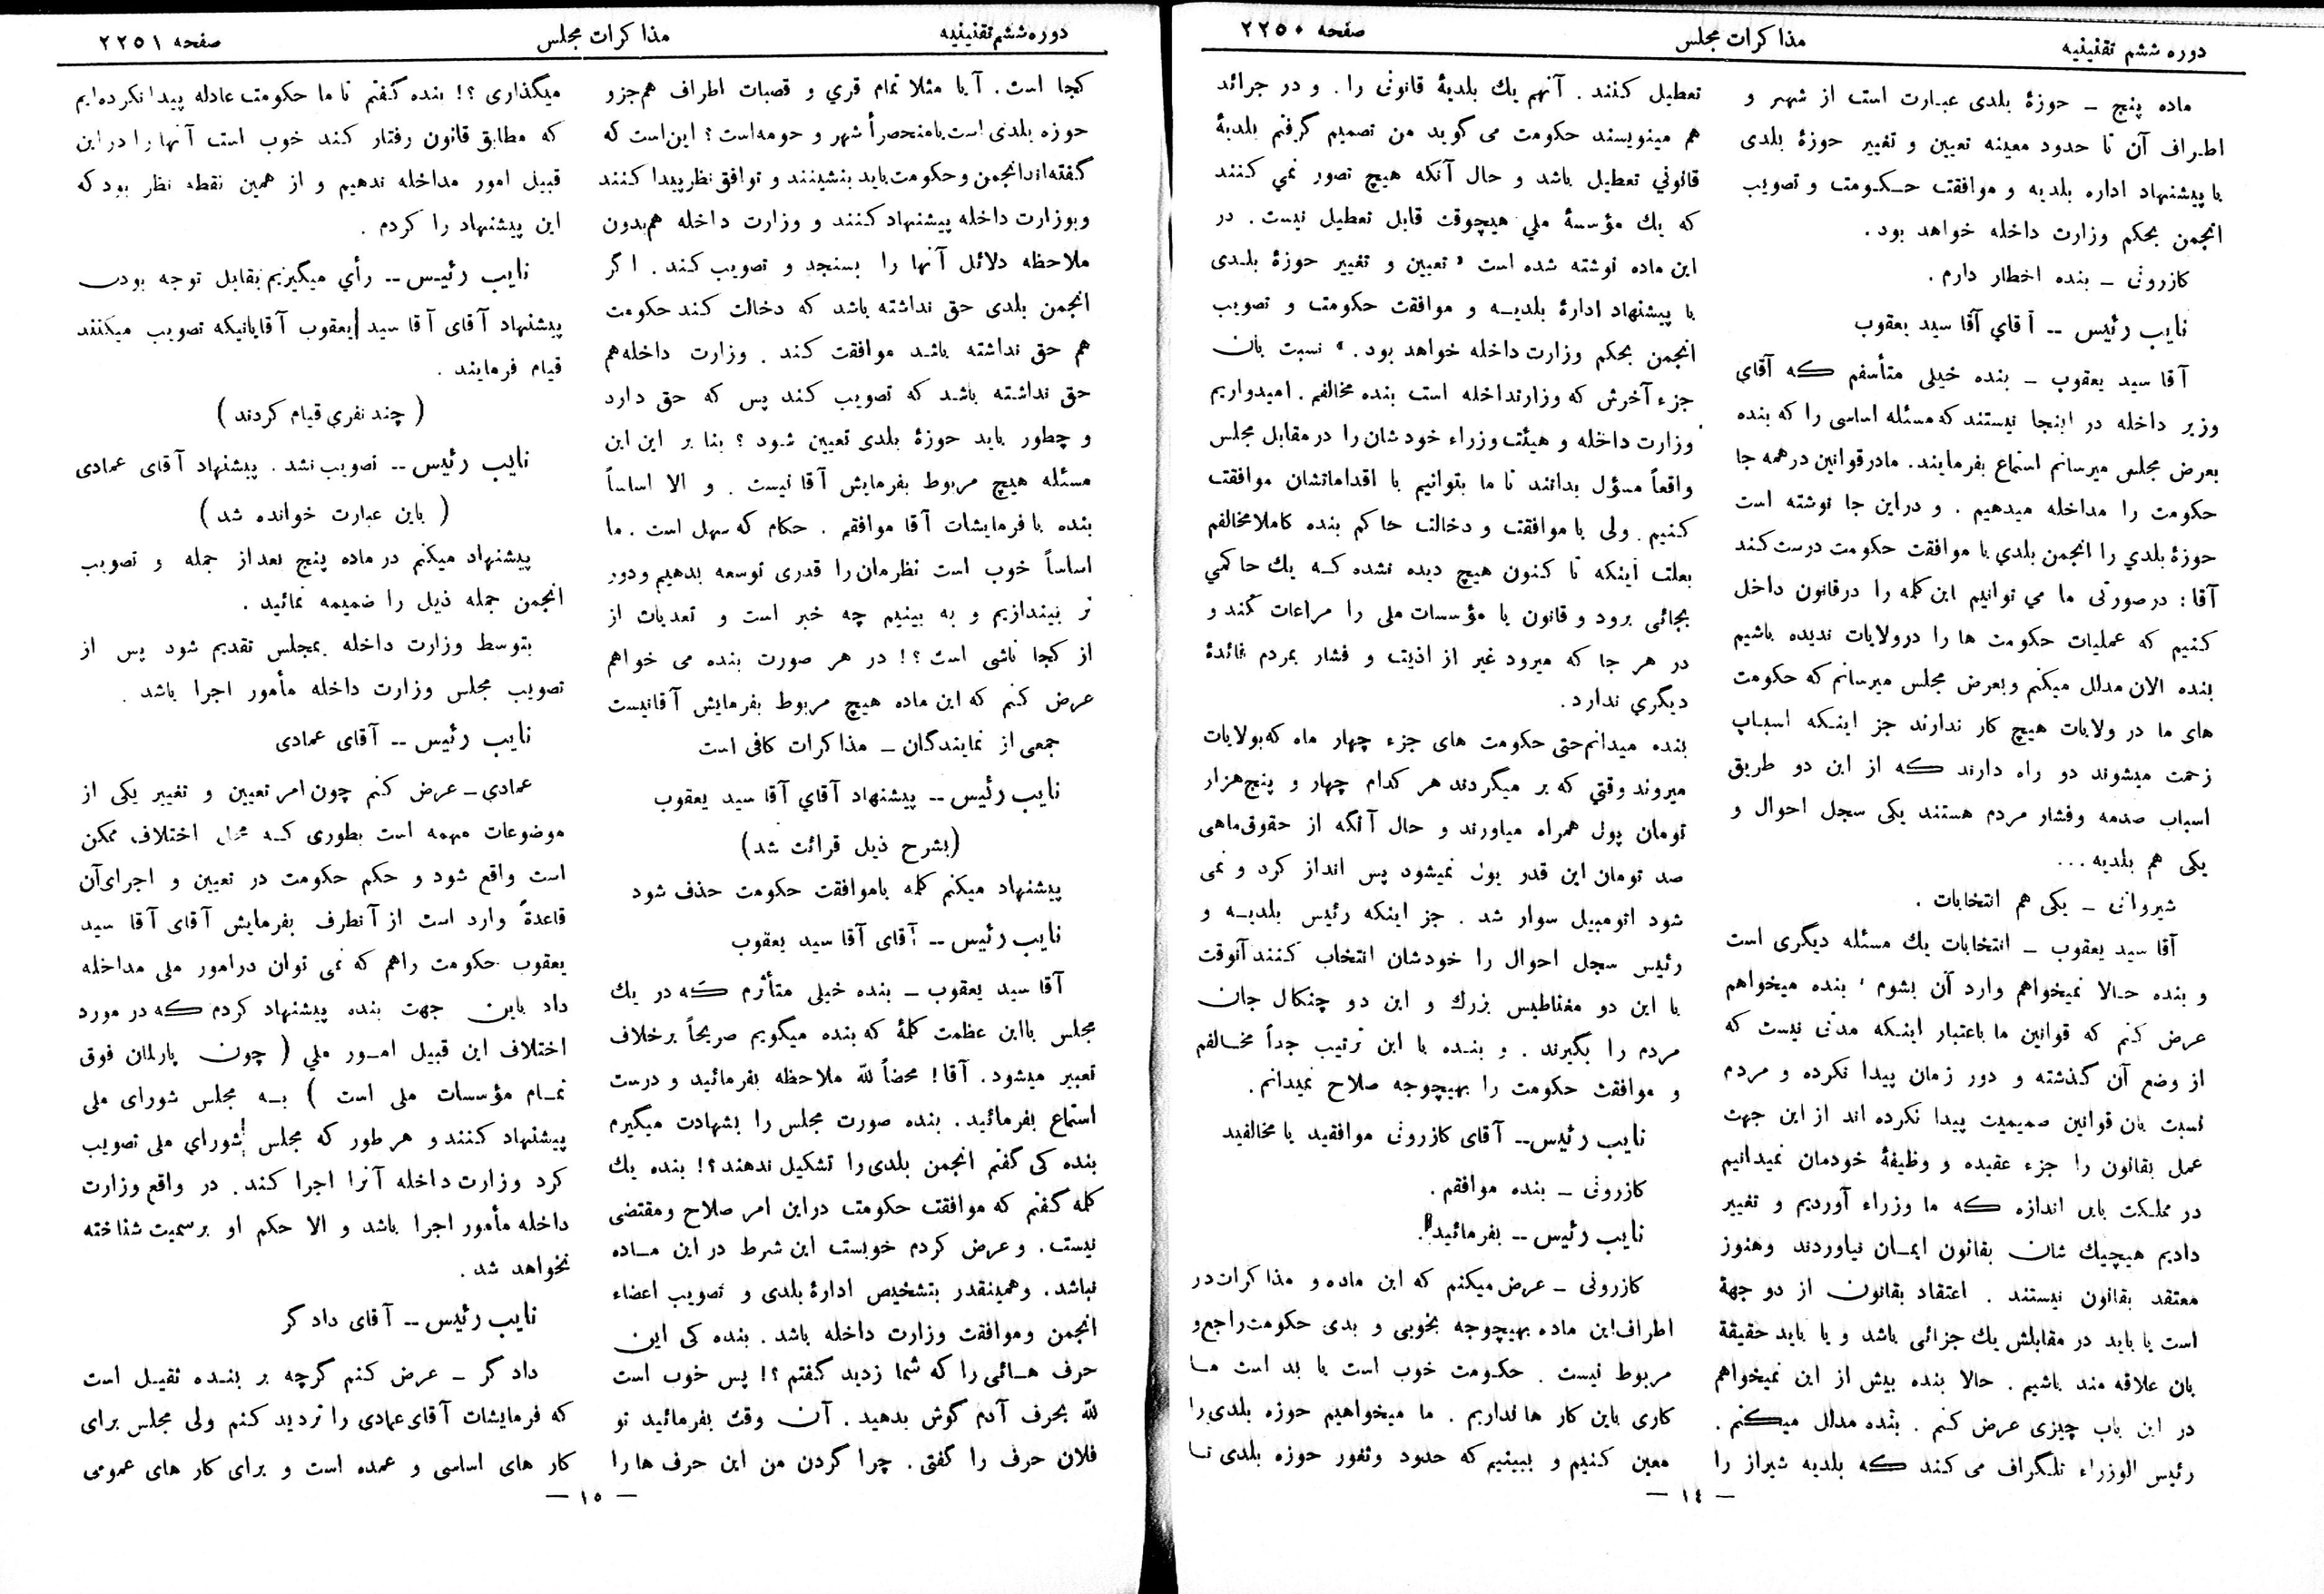 دوره ششم تقنینیه
مذاکرات مجلس
صفحه ۲۲۵۰
ماده پنج ـ حوزۀ بلدی عبارت است از شهر و
اطراف آن تا حدود معینه تعیین و تغییر حوزۀ بلدی
با پیشنهاد اداره بلدیه و موافقت حکومت و تصویب
انجمن بحکم وزارت داخله خواهد بود.
کازرونی ـ بنده اخطار دارم.
نایب رئیس ـــ آقای آقا سید یعقوب
آقا سید یعقوب ـ بنده خیلی متأسفم که آقای
وزیر داخله در اینجا نیستند که مسئله اساسی را که بنده
بعرض مجلس میرسانم استماع بفرمایند. مادرقوانین درهمه جا
حکومت را مداخله میدهیم. و دراین جا نوشته است
حوزۀ بلدي را انجمن بلدي با موافقت حکومت درست کند
آقا: درصورتی ما می توانیم این کلمه را درقانون داخل
کنیم که عملیات حکومت ها را درولایات ندیده باشیم
بنده الان مدلل میکنم وبعرض مجلس میرسانم که حکومت
های ما در ولایات هیچ کار ندارند جز اینکه اسباب
زحمت میشوند دو راه دارند که از این دو طریق
اسباب صدمه وفشار مردم هستند یکی سجل احوال و
یکی هم بلدیه...
شیروانی ـ یکی هم انتخابات.
آقا سید یعقوب ـ انتخابات یك مسئله دیگری است
و بنده حالا نمیخواهم وارد آن بشوم، بنده میخواهم
عرض کنم که قوانین ما باعتبار اینکه مدتی نیست که
از وضع آن گذشته و دور زمان پیدا نکرده و مردم
نسبت بان قوانین صمیمیت پیدا نکرده اند از این جهت
عمل بقانون را جزء عقیده و وظیفۀ خودمان نمیدانیم
در مملکت باین اندازه که ما وزراء آوردیم و تغییر
دادیم هیچیك شان بقانون ایمان نیاوردند وهنوز
معتقد بقانون نیستند. اعتقاد بقانون از دو جهة
است یا باید در مقابلش یك جزائی باشد و یا باید حقیقة
بان علاقه مند باشیم. حالا بنده بیش از این نمیخواهم
در این باب چیزی عرض کنم. بنده مدلل میکنم.
رئیس الوزراء تلگراف می کند که بلدیه شیراز را
تعطیل کنند. آنهم یك بلدیۀ قانونی را. و در جرائد
هم مینویسند حکومت می گوید من تصمیم گرفتم بلدیۀ
قانوني تعطیل باشد و حال آنکه هیچ تصور نمي کنند
که یك مؤسسۀ ملي هیچوقت قابل تعطیل نیست. در
این ماده نوشته شده است «تعیین و تغییر حوزۀ بلدی
با پیشنهاد ادارۀ بلدیه و موافقت حکومت و تصویب
انجمن بحکم وزارت داخله خواهد بود.» نسبت بان
جزء آخرش که وزارتداخله است بنده مخالفم. امیدواریم
وزارت داخله و هیئت وزراء خودشان را درمقابل مجلس
واقعاً مسؤل بدانند تا ما بتوانیم با اقداماتشان موافقت
کنیم. ولی با موافقت و دخالت حاکم بنده کاملا مخالفم
بعلت اینکه تا کنون هیچ دیده نشده که یك حاکمي
بجائی برود و قانون یا مؤسسات ملی را مراعات کند و
در هر جا که میرود غیر از اذیت و فشار بمردم فائدۀ
دیگري ندارد.
بنده میدانم حتی حکومت های جزء چهار ماه که بولایات
میروند وقتي که بر میگردند هر کدام چهار و پنج هزار
تومان پول همراه میاورند و حال آنکه از حقوق ماهی
صد تومان این قدر پول نمیشود پس انداز کرد و نمی
شود اتومبیل سوار شد. جز اینکه رئیس بلدیه و
رئیس سجل احوال را خودشان انتخاب کنند آنوقت
با این دو مغناطیس بزرك و این دو چنگال جان
مردم را بگیرند. و بنده با این ترتیب جداً مخالفم
و موافقت حکومت را بهیچوجه صلاح نمیدانم.
نایب رئیس ـــ آقای کازرونی موافقید یا مخالفید
کازرونی ـ بنده موافقم.
نایب رئیس ـــ بفرمائید.
کازرونی ـ عرض میکنم که این ماده و مذاکرات در
اطراف این ماده بهیچوجه بخوبی و بدی حکومت راجع و
مربوط نیست. حکومت خوب است یا بد است ما
کاری باین کار ها نداریم. ما میخواهیم حوزه بلدی را
معین کنیم و ببینیم که حدود وثغور حوزه بلدی تا
ـ ۱٤ ـ
دوره ششم تقنینیه
مذاکرات مجلس
صفحه ۲۲۵۱
کجا است. آیا مثلا تمام قري و قصبات اطراف هم جزو
حوزه بلدی است یا منحصرأ شهر و حومه است؟ این است که
گفته اند انجمن و حکومت باید بنشینند و توافق نظر پیدا کنند
وبوزارت داخله پیشنهاد کنند و وزارت داخله هم بدون
ملاحظه دلائل آنها را بسنجد و تصویب کند. اگر
انجمن بلدی حق نداشته باشد که دخالت کند حکومت
هم حق نداشته باشد موافقت کند. وزارت داخله هم
حق نداشته باشد که تصویب کند پس که حق دارد
و چطور باید حوزۀ بلدی تعیین شود؟ بنا بر این این
مسئله هیچ مربوط بفرمایش آقا نیست. و الا اساساً
بنده با فرمایشات آقا موافقم. حکام که سهل است. ما
اساساً خوب است نظرمان را قدری توسعه بدهیم ودور
تر بیندازیم و به بینیم چه خبر است و تعدیات از
از کجا ناشی است؟! در هر صورت بنده می خواهم
عرض کنم که این ماده هیچ مربوط بفرمایش آقانیست
جمعی از نمایندگان ـ مذاکرات کافی است
نایب رئیس ـــ پیشنهاد آقاي آقا سید یعقوب
(بشرح ذیل قرائت شد)
پیشنهاد میکنم کلمه باموافقت حکومت حذف شود
نایب رئیس ـــ آقای آقا سید یعقوب
آقا سید یعقوب ـ بنده خیلی متأثرم که در یك
مجلس بااین عظمت کلمۀ که بنده میگویم صریحاً برخلاف
تعبیر میشود. آقا! محضاً لله ملاحظه بفرمائید و درست
استماع بفرمائید. بنده صورت مجلس را بشهادت میگیرم
بنده کی گفتم انجمن بلدی را تشکیل ندهند؟! بنده یك
کلمه گفتم که موافقت حکومت دراین امر صلاح ومقتضی
نیست. وعرض کردم خوبست این شرط در این ماده
نباشد. وهمینقدر بتشخیص ادارۀ بلدی و تصویب اعضاء
انجمن وموافقت وزارت داخله باشد. بنده کی این
حرف هائی را که شما زدید گفتم؟! پس خوب است
لله بحرف آدم گوش بدهید. آن وقت بفرمائید تو
فلان حرف را گفتی. چرا گردن من این حرف ها را
میگذاری؟! بنده گفتم تا ما حکومت عادله پیدا نکرده ایم
که مطابق قانون رفتار کند خوب است آنها را دراین
قبیل امور مداخله ندهیم و از همین نقطه نظر بود که
این پیشنهاد را کردم.
نایب رئیس ـــ رأي میگیریم بقابل توجه بودن
پیشنهاد آقای آقا سید یعقوب آقایانیکه تصویب میکنند
قیام فرمایند.
(چند نفري قیام کردند)
نایب رئیس ـــ تصویب نشد. پیشنهاد آقای عمادی
(باین عبارت خوانده شد)
پیشنهاد میکنم در ماده پنج بعد از جمله و تصویب
انجمن جمله ذیل را ضمیمه نمائید.
بتوسط وزارت داخله بمجلس تقدیم شود پس از
تصویب مجلس وزارت داخله مأمور اجرا باشد.
نایب رئیس ـــ آقای عمادی
عمادي ـ عرض کنم چون امر تعیین و تغییر یکی از
موضوعات مهمه است بطوری که محل اختلاف ممکن
است واقع شود و حکم حکومت در تعیین و اجرای آن
قاعدةً وارد است از آنطرف بفرمایش آقای آقا سید
یعقوب حکومت راهم که نمی توان درامور ملی مداخله
داد باین جهت بنده پیشنهاد کردم که در مورد
اختلاف این قبیل امور ملي (چون پارلمان فوق
تمام مؤسسات ملی است) به مجلس شورای ملی
پیشنهاد کنند و هر طور که مجلس شوراي ملی تصویب
کرد وزارت داخله آنرا اجرا کند. در واقع وزارت
داخله مأمور اجرا باشد و الا حکم او برسمیت شناخته
نخواهد شد.
نایب رئیس ـــ آقای دادگر
دادگر ـ عرض کنم گرچه بر بنده ثقیل است
که فرمایشات آقای عمادی را تردید کنم ولی مجلس برای
کار های اساسی و عمده است و برای کار های عمومی
ـ ۱۵ ـ